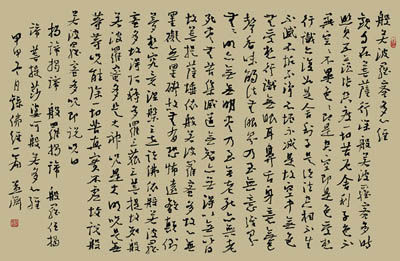 般若波羅蜜多心經
觀自在菩薩行深般若波羅蜜多時
照見五蘊皆空度一切苦厄舍利子色不
異空空不異色色即是空空即是色受想
行識亦復如是舍利子是諸法空相不生
不滅不垢不淨不增不減是故空中無色
無受想行識無眼耳鼻舌身意無色
聲香味觸法無眼界乃至無意識界
無無明亦無無明盡乃至無老死亦無老
死盡無苦集滅道無智亦無得以無所得故
菩提薩埵依般若波羅蜜多故心無
罣礙無罣礙故無有恐怖遠離顛倒
夢想究竟涅槃三世諸佛依般若波羅
蜜多故得阿耨多羅三藐三菩提故知般若
波羅蜜多是大神咒是大明咒是無上咒是無
等等咒能除一切苦真實不虛故說般
若波羅蜜多咒即說咒曰
揭諦揭諦 般羅揭諦 般羅僧揭
諦菩提薩婆訶般若多心經
甲申十月錄佛經一篇